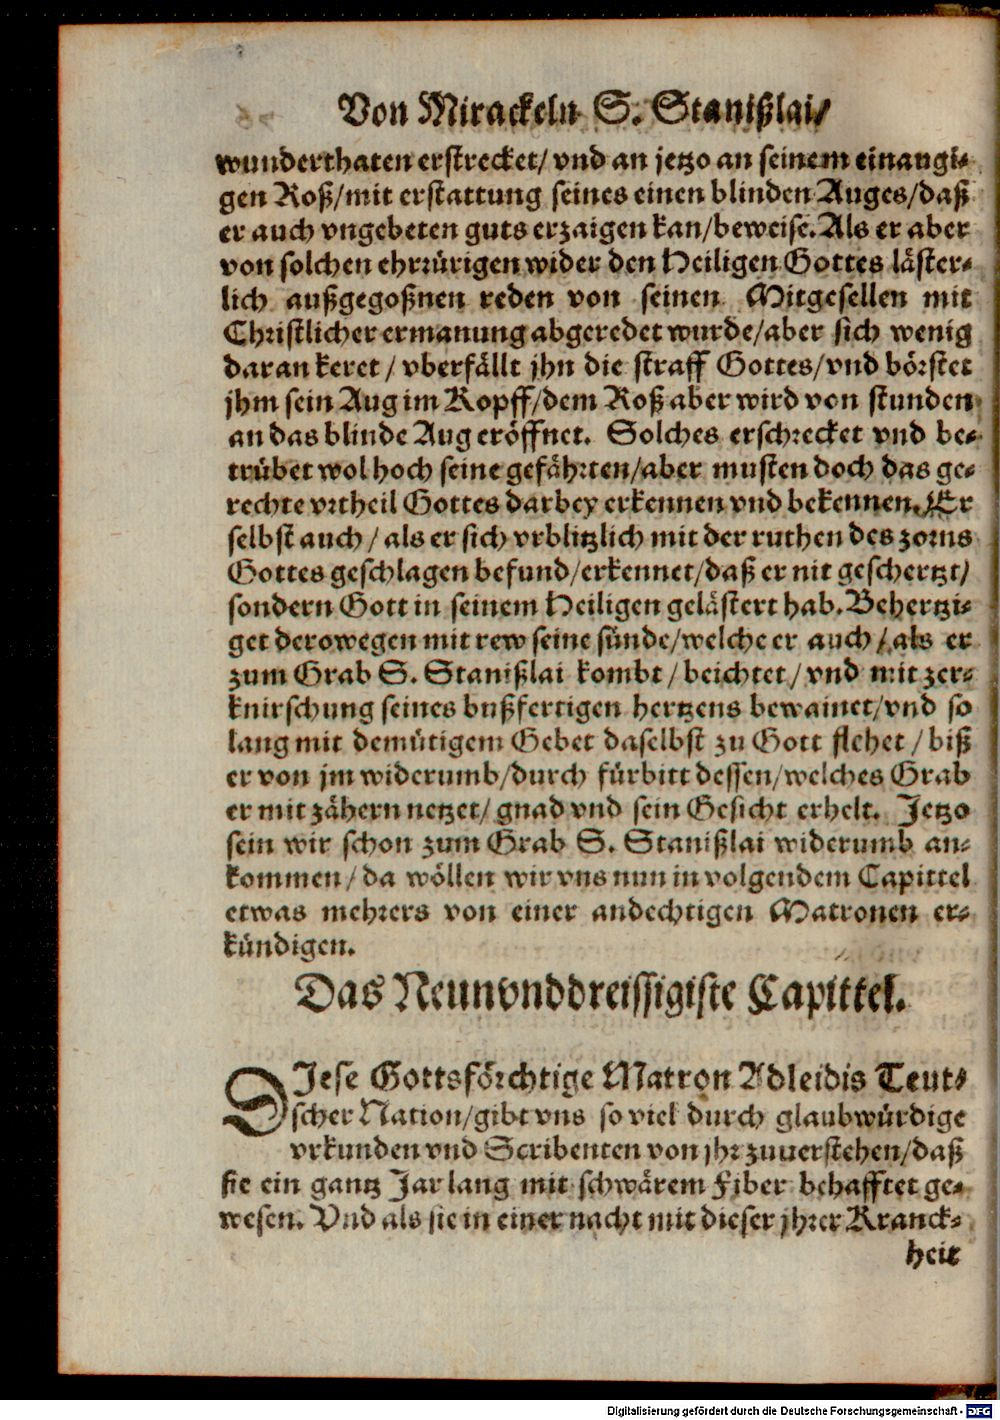 Von Mirackeln S. Stanißlai/
wunderthaten erstrecket/ vnd an jetzo an seinem einaugi-
gen Roß/mit erstattung seines einen blinden Auges/daß
er auch vngebeten guts erzaigen kan/beweise. Als er aber
von solchen ehrrürigen wider den Heiligen Gottes läster-
lich außgegoßnen reden von seinen Mitgesellen mit
Christlicher ermanung abgeredet wurde/aber sich wenig
daran keret / vberfällt jhn die straff Gottes/vnd börstet
jhm sein Aug im Kopff/dem Roß aber wird von stunden
an das blinde Aug eröffnet. Solches erschrecket vnd be-
trübet wol hoch seine gefährten/aber musten doch das ge-
rechte vrtheil Gottes darbey erkennen vnd bekennen. Er
selbst auch / als er sich vrblitzlich mit der ruthen des zorns
Gottes geschlagen befund/erkennet/daß er nit geschertzt/
sondern Gott in seinem Heiligen gelästert hab. Behertzi-
get derowegen mit rew seine sünde/welche er auch / als er
zum Grab S. Stanißlai kombt / beichtet / vnd mit zer-
knirschung seines bußfertigen hertzens bewainet/vnd so
lang mit demütigem Gebet daselbst zu Gott flehet / biß
er von jm widerumb/durch fürbitt dessen/welches Grab
er mit zähern netzet/ gnad vnd sein Gesicht erhelt. Jetzo
sein wir schon zum Grab S. Stanißlai widerumb an-
kommen / da wöllen wir vns nun in volgendem Capittel
etwas mehrers von einer andechtigen Matronen er-
kündigen.
Das Neunvnddreissigiste Capittel.
DIese Gottsförchtige Matron Adleidis Teut-
scher Nation/gibt vns so viel durch glaubwürdige
vrkunden vnd Scribenten von jhr zuuerstehen/daß
sie ein gantz Jar lang mit schwärem Fiber behafftet ge-
wesen. Vnd als sie in einer nacht mit dieser jhrer Kranck-
heit
Digitalisierung gefördert durch die Deutsche Forschungsgemeinschaft - DFG